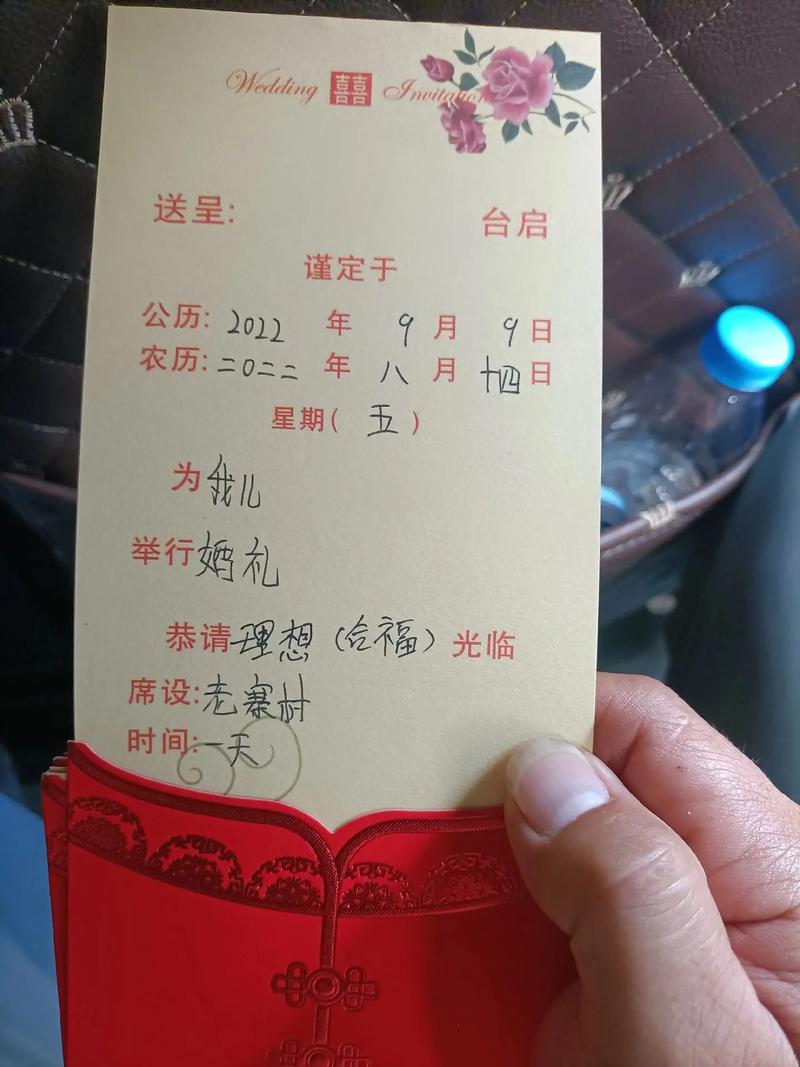 Wedding 囍 Invitation
送呈: 台启
谨定于
公历: 2022 年 9 月 9 日
农历: 二〇二二 年 八 月 十四 日
星期( 五 )
为 我儿
举行 婚礼
恭请 理想 (合福) 光临
席设: 老寨村
时间: 一天